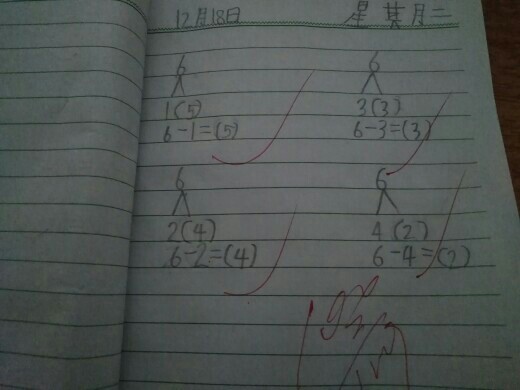 12月18日 星其月二
6 6
1(5) 3(3)
6-1=(5) 6-3=(3)
6 6
2(4) 4(2)
6-2=(4) 6-4=(2)